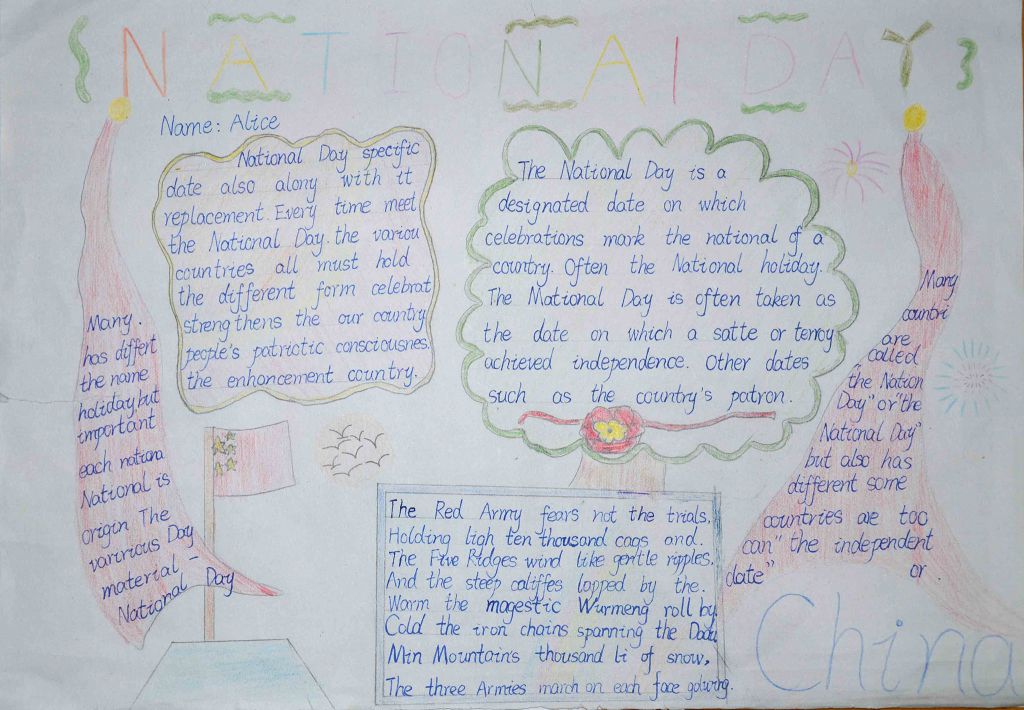 NATIONAL DAY
Name: Alice
National Day specific
date also along with it
replacement. Every time meet
the National Day. the variou
countries all must hold
the different form celebrat
strengthens the our country
people's patriotic consciousnes.
the enhancement country.
The National Day is a
designated date on which
celebrations mark the national of a
country. Often the National holiday.
The National Day is often taken as
the date on which a satte or
achieved independence. Other dates
such as the country's patron.
Many.
has differt
the name
holiday,but
important
each nationa
National is
origin The
varirious Day
material -
National - Day
Many
countri
are
called
"the Nation
Day" or "the
National Day"
but also has
different some
countries are too
can" the independent
date" or
The Red Army fears not the trials,
Holding ligh ten thousand cags and.
The Five Ridges wind like gentle ripples.
And the steep califfes lopped by the.
Warm the magestic Wurmeng roll by
Cold the iron chains spanning the
Min Mountain's thousand li of snow,
The three Armies march on each face
China